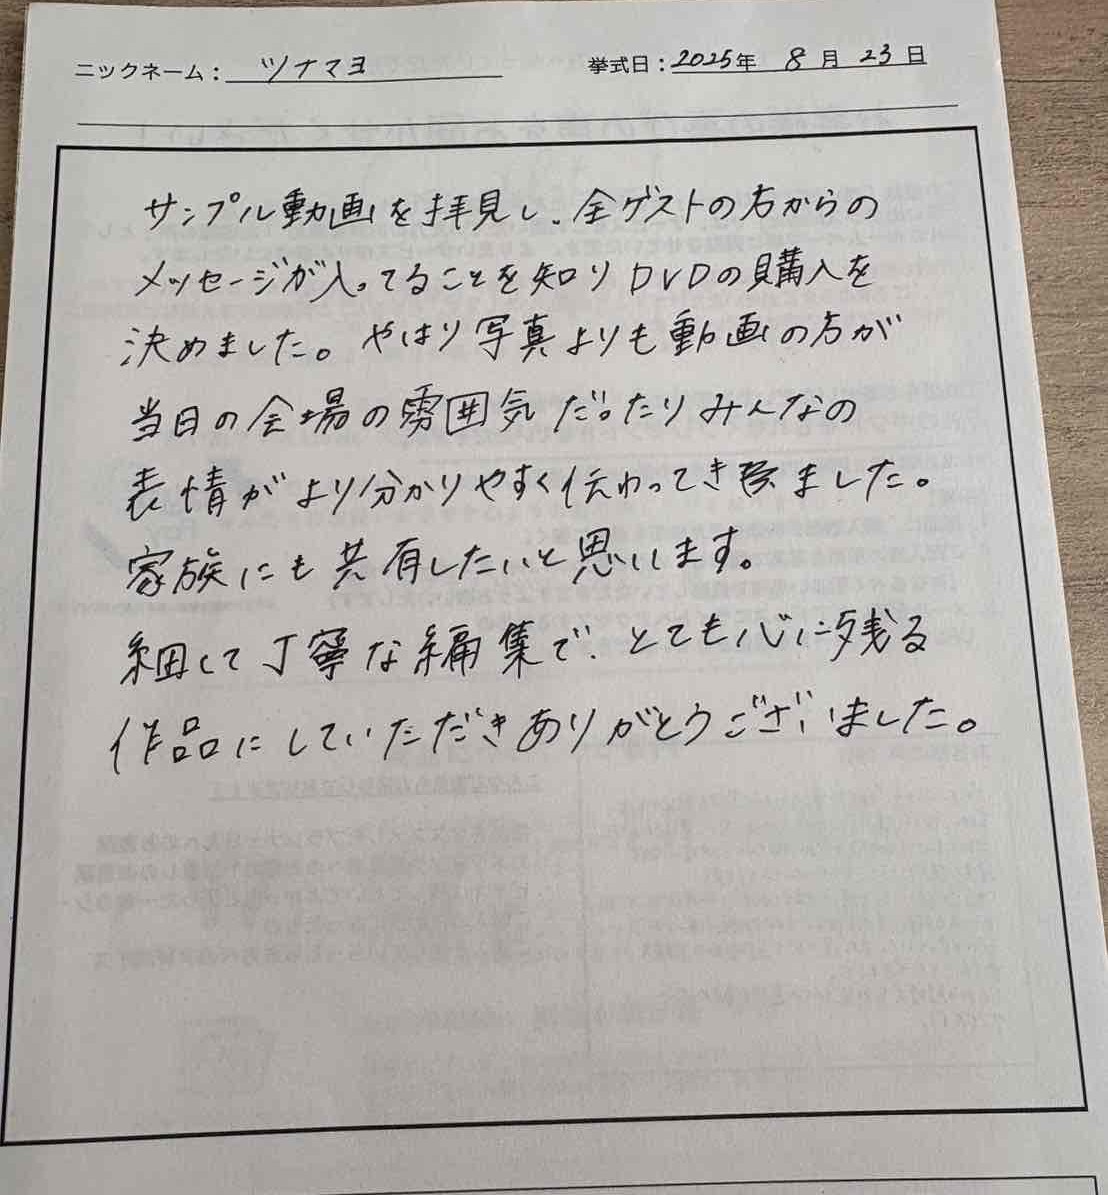 ニックネーム： ツナマヨ 挙式日：2025年 8月 23日
サンプル動画を拝見し、全ゲストの方からの
メッセージが入ってることを知りDVDの購入を
決めました。やはり写真よりも動画の方が
当日の会場の雰囲気だったりみんなの
表情がより分かりやすく伝わってきました。
家族にも共有したいと思います。
細くて丁寧な編集で、とても心に残る
作品にしていただきありがとうございました。